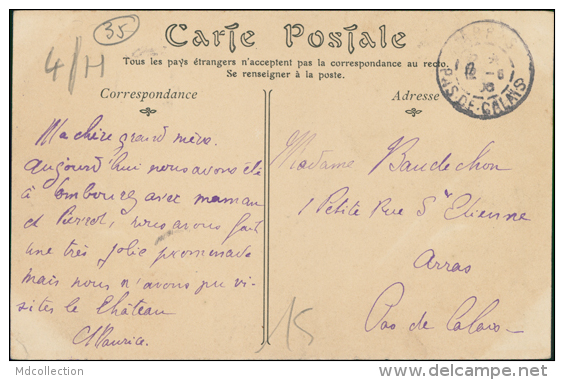 35
4/H
Carte Postale
Tous les pays étrangers n'acceptent pas la correspondance au recto.
Se renseigner à la poste.
Correspondance
Adresse
PAS-DE-CALAIS
Ma chère grand mère.
aujourd'hui nous avons été
à avec maman
et Pierrot, nous avons fait
une très jolie promenade
mais nous n'avons pu vi-
siter le Château
Maurice.
Madame Baudechon
1 Petite Rue St Etienne
Arras
Pas de Calais
15
Mdcollection
delcampe.net